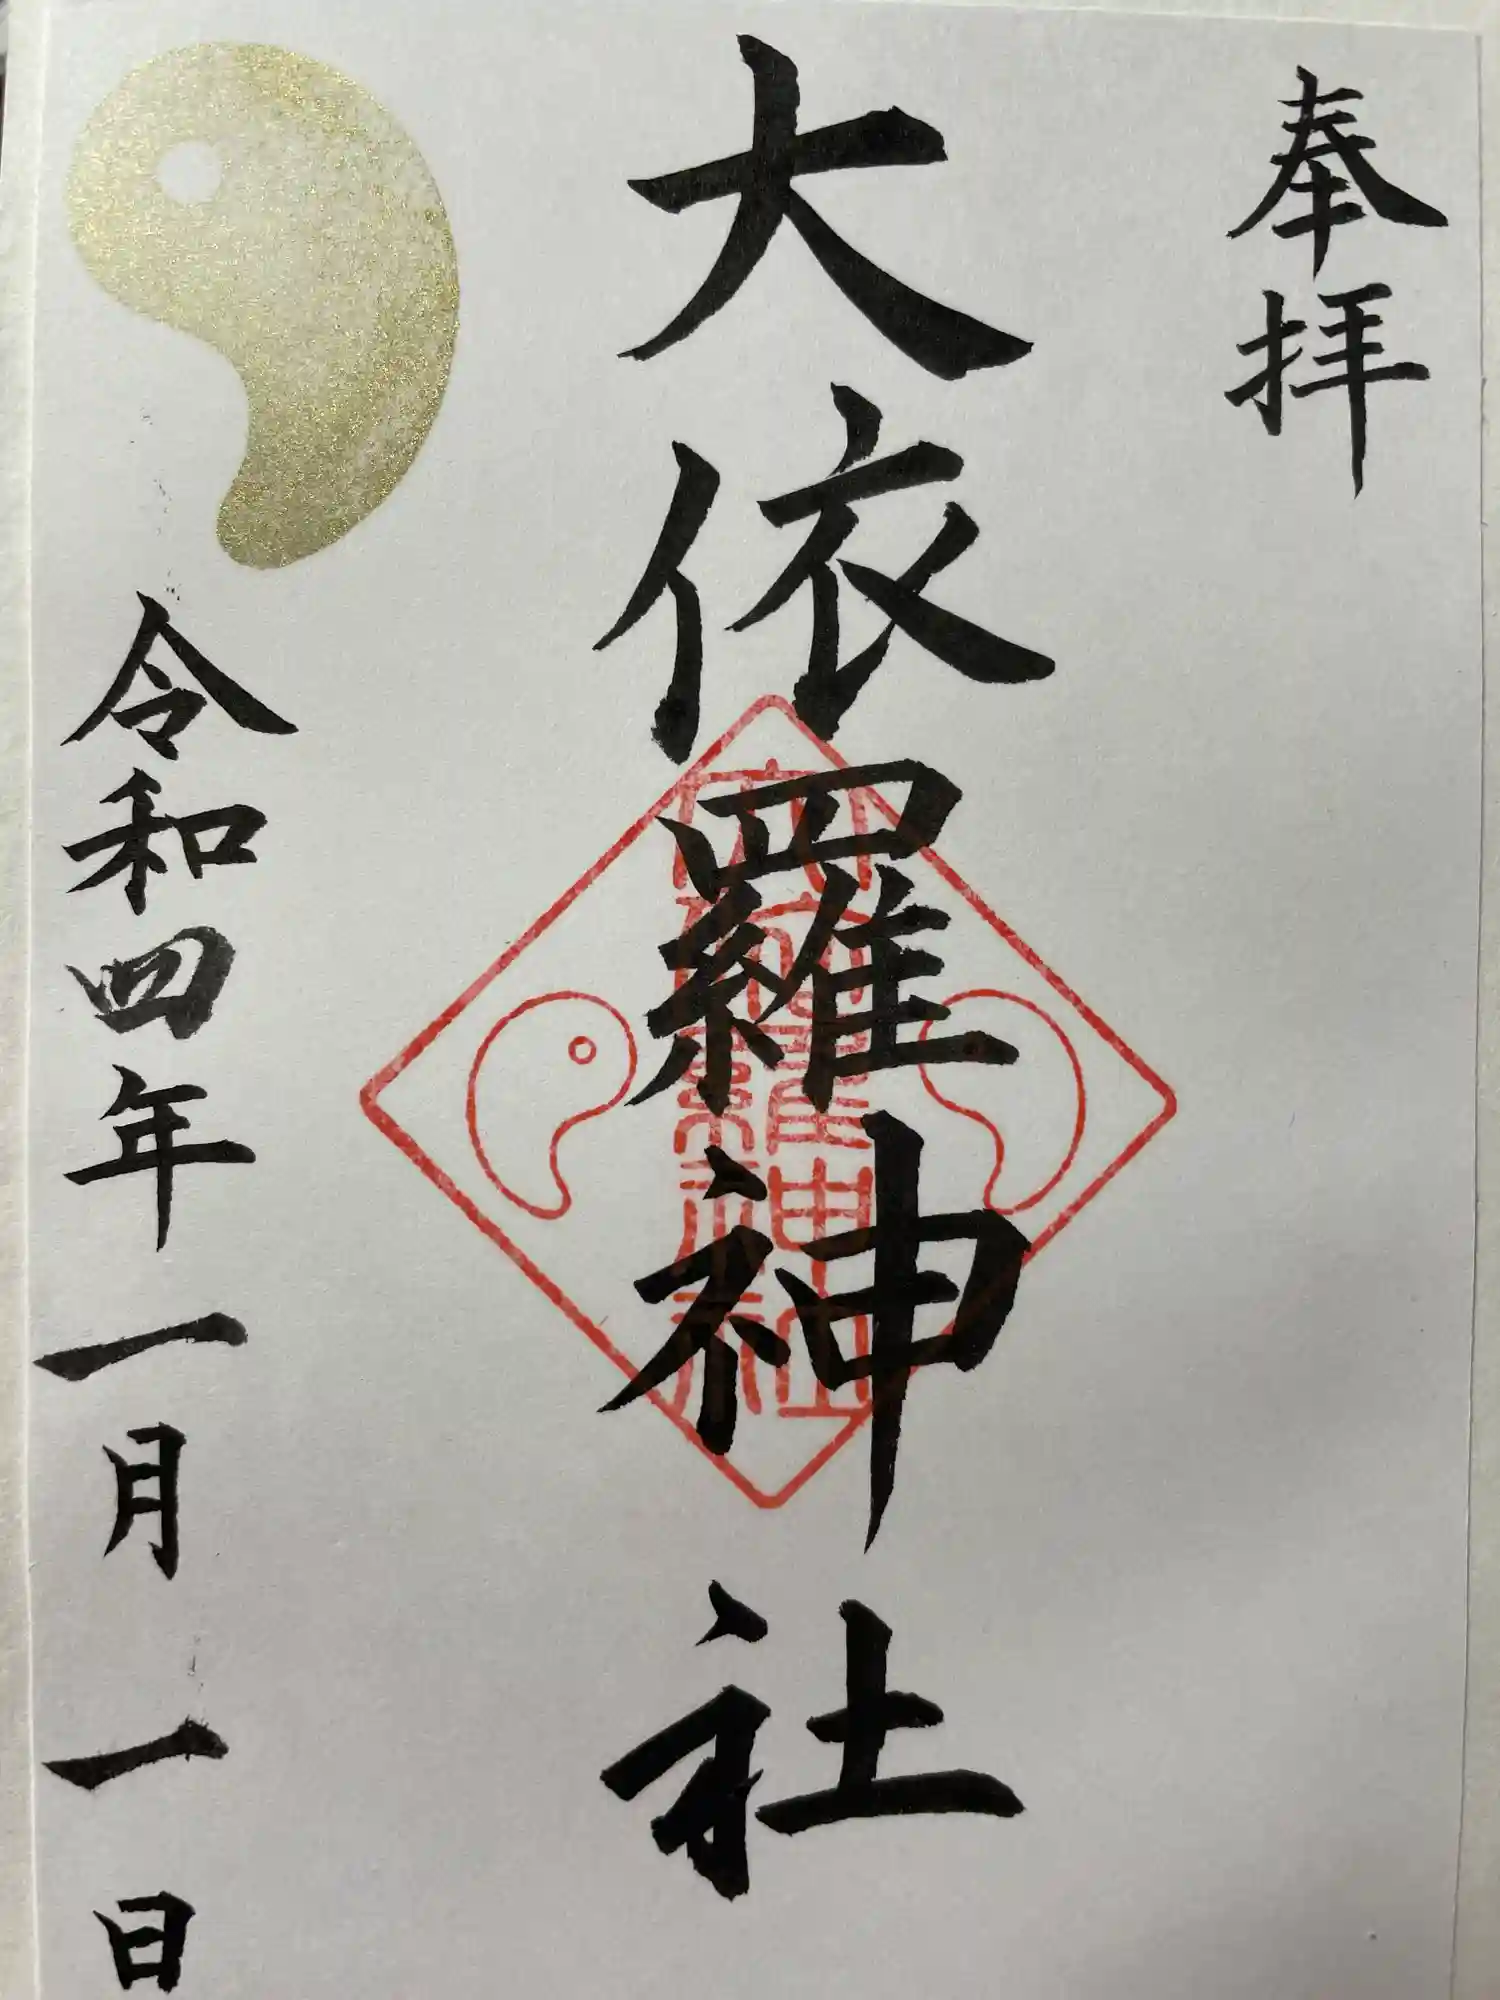 奉拝
大依羅神社
大依羅神社
令和四年一月一日